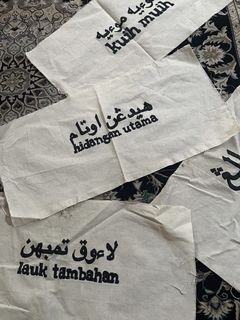 كوءيه موءيه
kuih muih
هيدڠن اوتام
hidangan utama
لاءوق تمبهن
lauk tambahan